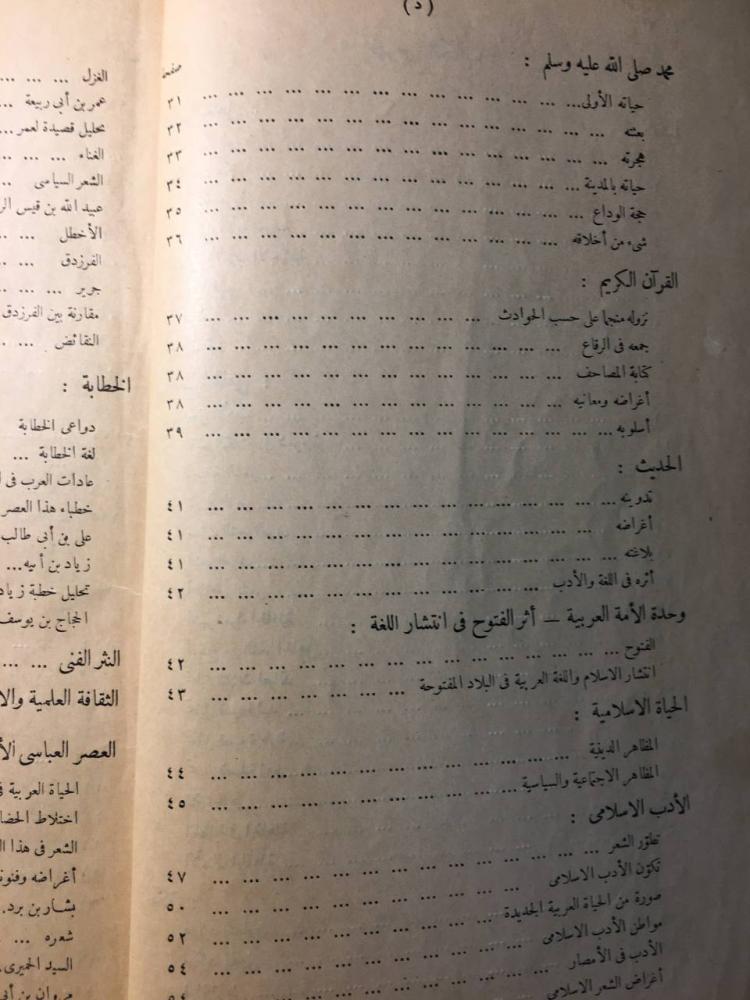 ( د )
صفحة
محمد صلى الله عليه وسلم :
حياته الأولى ... ٣١
بعثته ... ٣٢
هجرته ... ٣٣
حياته بالمدينة ... ٣٤
حجة الوداع ... ٣٥
شىء من أخلاقه ... ٣٦
القرآن الكريم :
نزوله منجما على حسب الحوادث ... ٣٧
جمعه فى الرقاع ... ٣٨
كتابة المصاحف ... ٣٨
أغراضه ومعانيه ... ٣٨
أسلوبه ... ٣٩
الحديث :
تدوينه ... ٤١
أغراضه ... ٤١
بلاغته ... ٤١
أثره فى اللغة والأدب ... ٤٢
وحدة الأمة العربية — أثر الفتوح فى انتشار اللغة :
الفتوح ... ٤٢
انتشار الاسلام واللغة العربية فى البلاد المفتوحة ... ٤٣
الحياة الاسلامية :
المظاهر الدينية ... ٤٤
المظاهر الاجتماعية والسياسية ... ٤٥
الأدب الاسلامى :
تطور الشعر ... ٤٧
تكوّن الأدب الاسلامى ... ٥٠
صورة من الحياة العربية الجديدة ... ٥٢
مواطن الأدب الاسلامى ... ٥٤
الأدب فى الأمصار ...
أغراض الشعر الاسلامى
الغزل ... ... ...
عمر بن أبى ربيعة ...
تحليل قصيدة لعمر ...
الغناء ... ... ...
الشعر السياسى ...
عبيد الله بن قيس
الأخطل ... ...
الفرزدق ... ...
جرير ... ... ...
مقارنة بين الفرزدق
النقائض ... ...
الخطابة :
دواعى الخطابة
لغة الخطابة ...
عادات العرب فى
خطباء هذا العصر
على بن أبى طالب
زياد بن أبيه ...
تحليل خطبة زياد
الحجاج بن يوسف
النثر الفنى ... ...
الثقافة العلمية
العصر العباسى
الحياة العربية
اختلاط
الشعر فى هذا
أغراضه وفنونه
بشار بن برد .
شعره ... ...
السيد الحميرى .
مروان بن أبى